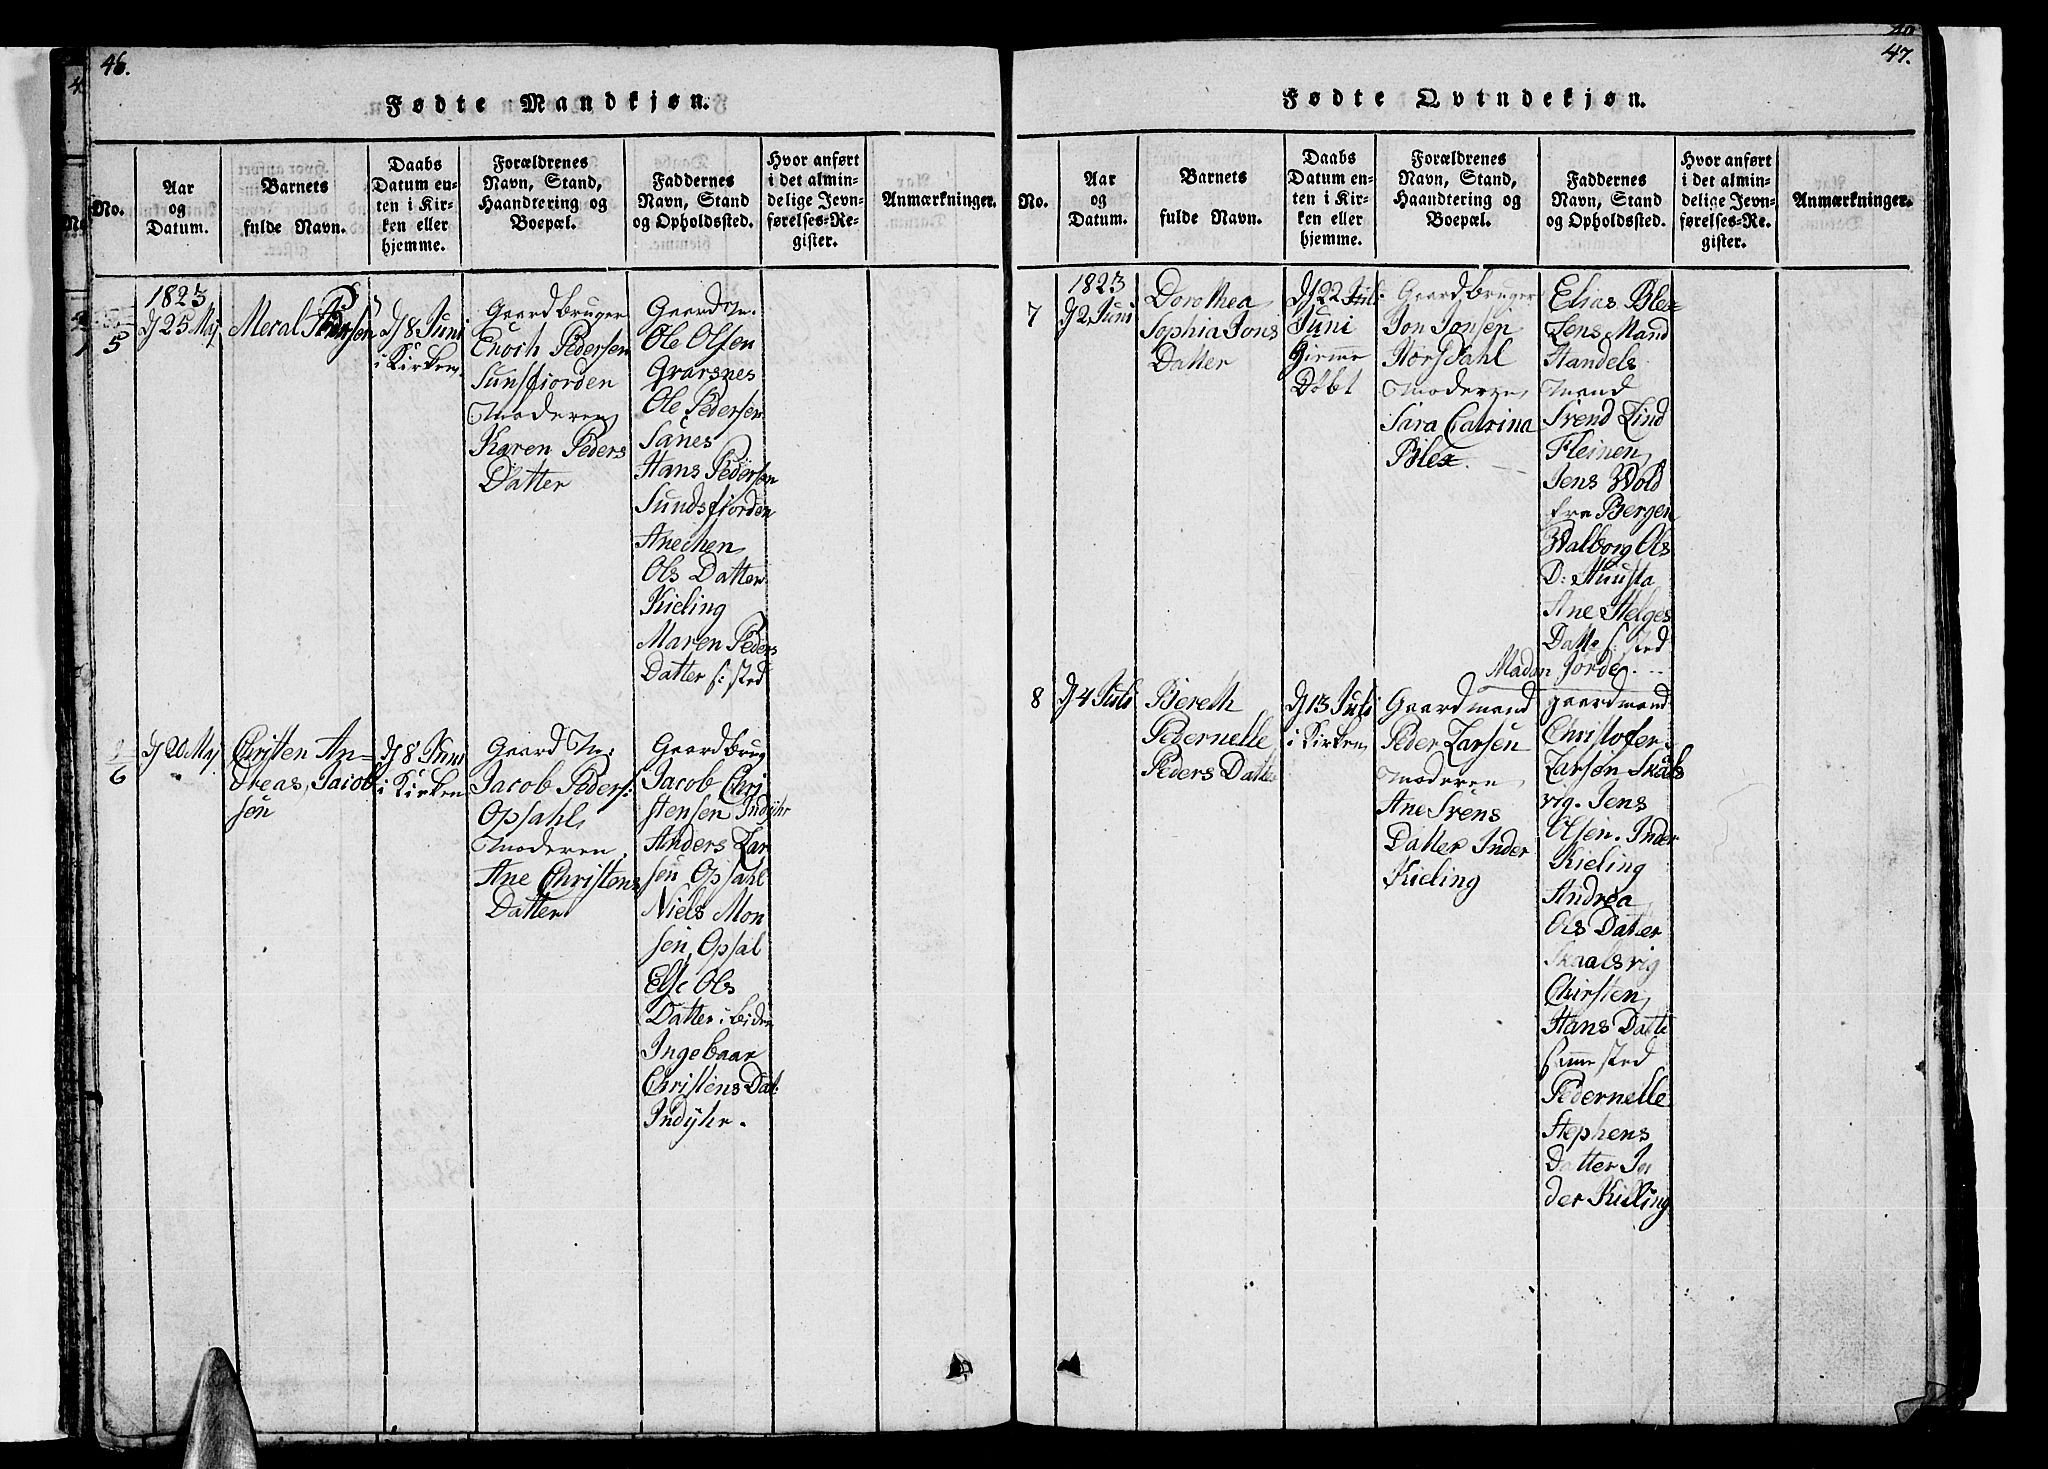 46.
Fødte Mandkjøn.
No.
Aar
og
Datum.
Barnets
fulde Navn.
Daabs
Datum en-
ten i Kir-
ken eller
hjemme.
Forældrenes
Navn, Stand,
Haandtering og
Boepæl.
Faddernes
Navn, Stand
og Opholdssted.
Hvor anført
i det almin-
delige Jevn-
førelses-Re-
gister.
Anmærkninger.
5
1823
d 25 Maj
Meral
d 8 Juni
i Kirken
Gaardbruger
Enoch Pedersen
Sunsfiorden
Moderen
Karen Peders
Datter
Gaard M.
Ole Olsen
Grarsnes
Ole Pedersen
Sånes
Hans Pedersen
Sundsfiorden
Anechen
Ols Datter
Kieling
Maren Peders
Datter s: sted
6
d 20 Maj
Christen An-
dreas, Jacob
sen
d 8 Juni
i Kirken
Gaard M:
Jacob Peders:
Opsahl
Moderen
Ane Christens
Datter
Gaardbrug
Jacob Chri
stensen Indyhr
Anders Lar
sen Opsahl
Niels Mon
sen, Opsal
Else Ols
Datter i
Ingebaar
Christens Dat.
Indyhr.
47.
Fødte Qvindekjøn.
No.
Aar
og
Datum.
Barnets
fulde Navn.
Daabs
Datum en-
ten i Kir-
ken eller
hjemme.
Forældrenes
Navn, Stand,
Haandtering og
Boepæl.
Faddernes
Navn, Stand
og Opholdssted.
Hvor anført
i det almin-
delige Jevn-
førelses-Re-
gister.
Anmærkninger.
7
1823
d 2 Juni
Dorothea
Sophia Jons
Datter
d 22
Juni
Hiemme
Døbt
Gaardbruger
Jon Jonsen
Storsdahl
Moderen
Sara Catrina
Blex.
Elias Blex
Lens Mand
Handels
Mand
Svend Lind
Fleinen
Jens Wold
fra Bergen
Walborg Ols
D:
Ane Helges
Datte s: sted
Madm Jorde
8
d 4 Juli
Bereth
Pedernelle
Peders Datter
d 13 Juli
i Kirken
Gaardmand
Peder Larsen
Moderen
Ane Svens
Datter Inder
Kieling
gaardmand
Christofer
Larsen Skåls
vig. Jens
Olsen. Inder
Kieling
Andrea
Ols Datter
Skaalsvig
Chirsten
Hans Datte
samme sted
Pedernelle
Stephens
Datter In
der Kieling